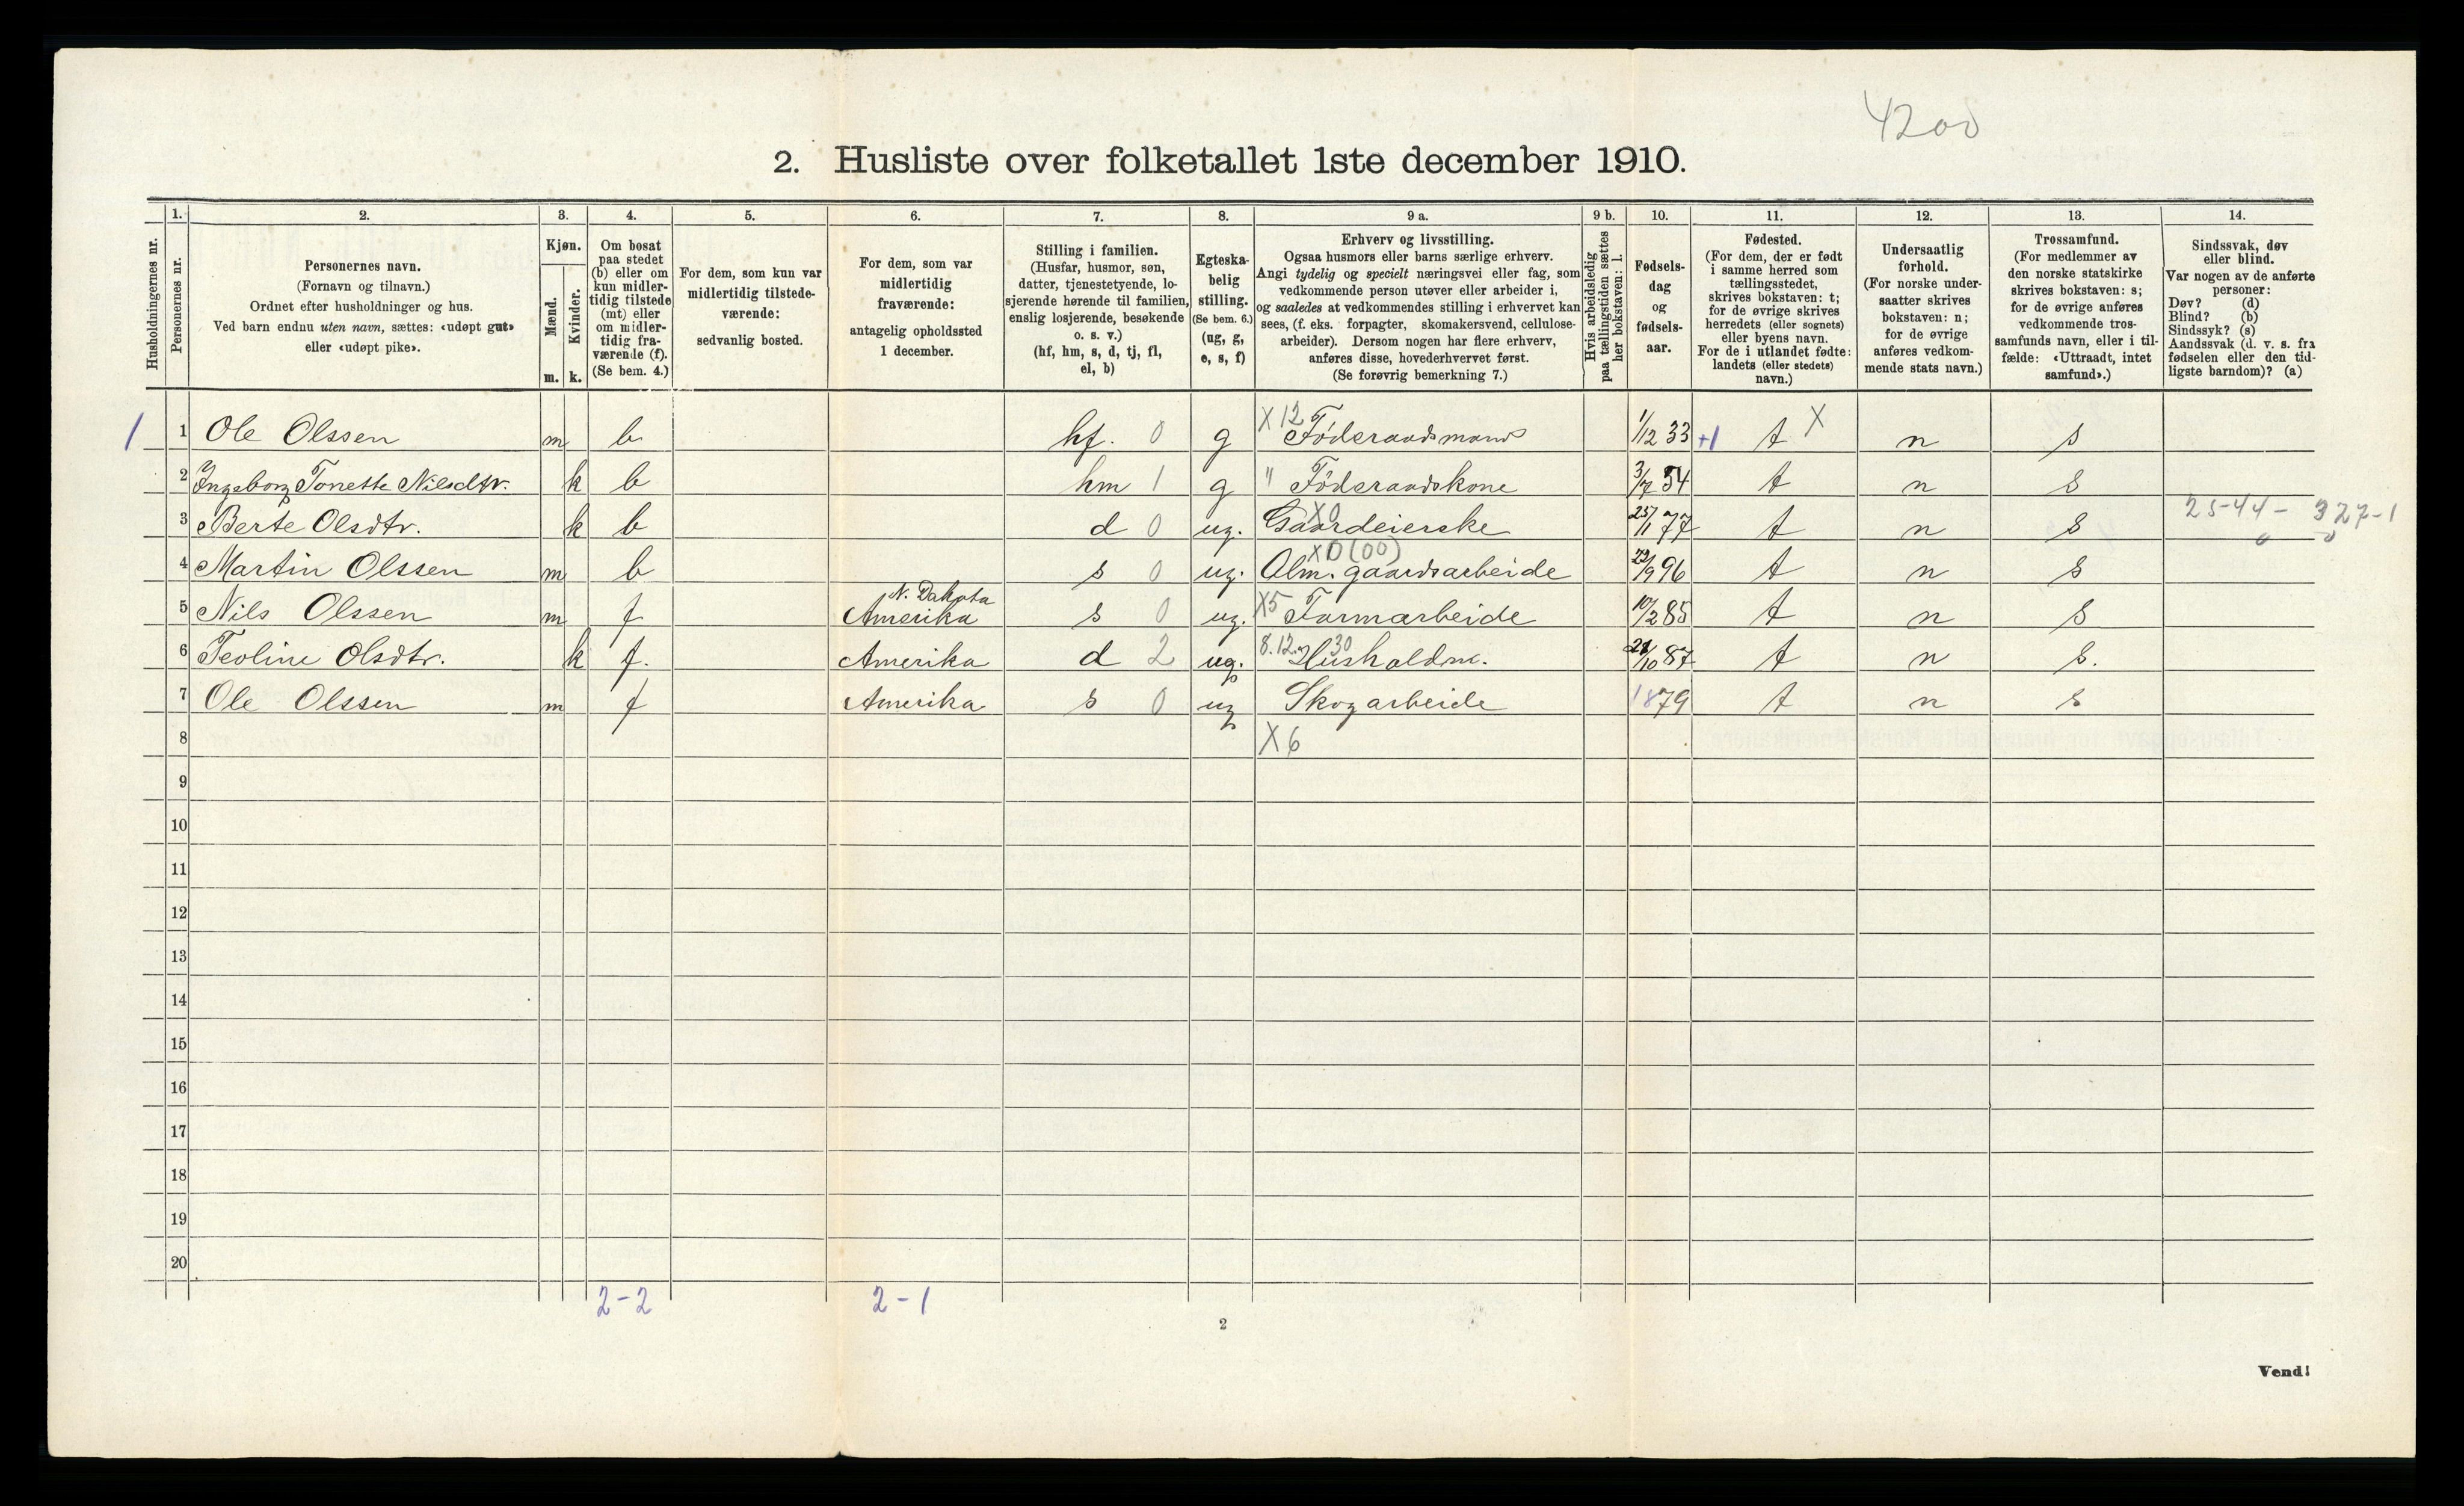 4200
2. Husliste over folketallet 1ste december 1910.
Husholdningernes nr.
1.
Personernes nr.
2.
Personernes navn.
(Fornavn og tilnavn.)
Ordnet efter husholdninger og hus.
Ved barn endnu uten navn, sættes: «udøpt gut»
eller «udøpt pike».
3.
Kjøn.
Mænd.
Kvinder.
m. k.
4.
Om bosat
paa stedet
(b) eller om
kun midler-
tidig tilstede
(mt) eller
om midler-
tidig fra-
værende (f).
(Se bem. 4.)
5.
For dem, som kun var
midlertidig tilstede-
værende:
sedvanlig bosted.
6.
For dem, som var
midlertidig
fraværende:
antagelig opholdssted
1 december.
7.
Stilling i familien.
(Husfar, husmor, søn,
datter, tjenestetyende, lo-
sjerende hørende til familien,
enslig losjerende, besøkende
o. s. v.)
(hf, hm, s, d, tj, fl,
el, b)
8.
Egteska-
belig
stilling.
(Se bem. 6.)
(ug, g,
e, s, f)
9 a.
Erhverv og livsstilling.
Ogsaa husmors eller barns særlige erhverv.
Angi tydelig og specielt næringsvei eller fag, som
vedkommende person utøver eller arbeider i,
og saaledes at vedkommendes stilling i erhvervet kan
sees, (f. eks. forpagter, skomakersvend, cellulose-
arbeider). Dersom nogen har flere erhverv,
anføres disse, hovederhvervet først.
(Se forøvrig bemerkning 7.)
9 b.
Hvis arbeidsledig
paa tællingstiden sættes
her bokstaven: l.
10.
Fødsels-
dag
og
fødsels-
aar.
11.
Fødested.
(For dem, der er født
i samme herred som
tællingsstedet,
skrives bokstaven: t;
for de øvrige skrives
herredets (eller sognets)
eller byens navn.
For de i utlandet fødte:
landets (eller stedets)
navn.)
12.
Undersaatlig
forhold.
(For norske under-
saatter skrives
bokstaven: n;
for de øvrige
anføres vedkom-
mende stats navn.)
13.
Trossamfund.
(For medlemmer av
den norske statskirke
skrives bokstaven: s;
for de øvrige anføres
vedkommende tros-
samfunds navn, eller i til-
fælde: «Uttraadt, intet
samfund».)
14.
Sindssvak, døv
eller blind.
Var nogen av de anførte
personer:
Døv? (d)
Blind? (b)
Sindssyk? (s)
Aandssvak (d. v. s. fra
fødselen eller den tid-
ligste barndom)? (a)
1 1 Ole Olssen m b hf. 0 g X 12 Føderaadsmand 1/12 33 +1 t X n s
2 Ingeborg Tonette Nilsdtr. k b hm 1 g " Føderaadskone 3/7 54 t n s
3 Berte Olsdtr. k b d 0 ug. X0 Gaardeierske 25/1 77 t n s 25-44- 327-1
4 Martin Olssen m b s 0 ug. X0(00) Alm. gaardsarbeide 22/9 96 t n s
5 Nils Olssen m f N. Dakota Amerika s 0 ug. X5 Farmarbeide 10/2 85 t n s
6 Teoline Olsdtr. k f. Amerika d 2 ug. 8.12. 30 Husholdn. 21/10 87 t n s.
7 Ole Olssen m f Amerika s 0 ug Skogarbeide 1879 t n s
8 X6
9
10
11
12
13
14
15
16
17
18
19
20
2-2 2-1
2
Vend!